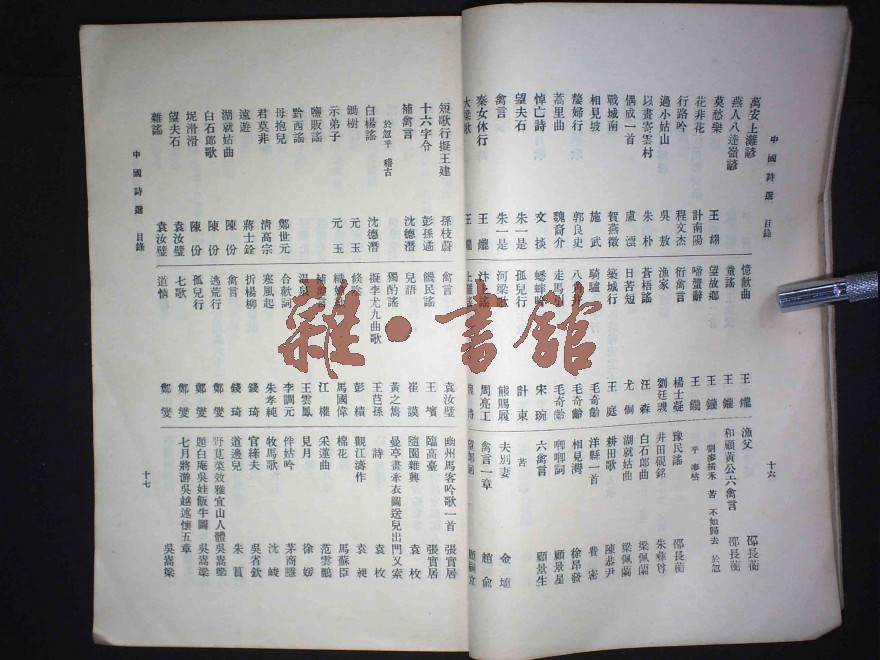 中國詩選 目錄
十六
萬安上灘諺
燕人八達嶺諺
莫愁樂 王翃
花非花 計南陽
行路吟 程文杰
過小姑山 吳敖
以畫寄雲村 朱朴
偶成一首 盧澐
戰城南 賀燕徵
相見坡 施武
嫠婦行 郭良史
蒿里曲 魏裔介
悼亡詩 文掞
望夫石 朱一是
禽言 朱一是
秦女休行 王鑨
大梁歌
憶猷曲 王鑨
童謠 王鑨
望故鄉 王鑨
啼蟹辭 王鑨
衍禽言 楊士凝
漁家 劉廷璣
蒼梧謠 汪森
日苦短 尤侗
築城行 王庭
騎驢 毛奇齡
毛奇齡
走馬 毛奇齡
蟋蟀 宋琬
孤兒行 計東
河梁歌 熊賜履
汴謠 周亮工
上灘謠
漁父 邵長蘅
和顧黃公六禽言 邵長蘅
不如歸去
豫民謠 邵長蘅
井田硯銘 朱彝尊
白石郎曲 梁佩蘭
湖就姑曲 梁佩蘭
耕田歌 陳恭尹
洋縣一首 費密
相見灣 徐昂發
唧唧詞 顧景星
六禽言 顧景生
苦
夫別妻
禽言一章 趙俞
中國詩選 目錄
十七
短歌行擬王建 孫枝蔚
十六字令 彭孫遹
補禽言 沈德潛
白楊謠 沈德潛
鋤樹 元玉
示弟子 元玉
鹽販謠
黔西謠
母抱兒 鄭世元
君莫非 清高宗
遠遊 蔣士銓
湖就姑曲 陳份
白石郎歌 陳份
坭滑滑 陳份
望夫石 袁汝璧
雜謠 袁汝璧
禽言 袁汝璧
饑民謠 王
兒語 崔謨
獨酌謠 黃之雋
擬李尤九曲歌 王芑孫
彭績
馬國偉
江權
王雲鳳
合歡詞 李調元
寒風起 朱孝純
折楊柳 錢琦
禽言 錢琦
逃荒行 鄭燮
孤兒行 鄭燮
七歌 鄭燮
道情 鄭燮
幽州馬客吟歌一首 張實居
臨高臺 張實居
隨園雜興 袁枚
曼亭畫牽衣圖送兒出門又索詩 袁枚
觀江濤作 袁昶
棉花 馬蘇臣
采蓮曲 范雲鵬
見月 徐嫪
伴姑吟 茅商隱
牧馬歌 沈峻
官綘夫 吳省欽
道邊兒 朱
野菜效雅宜山人體 吳嵩梁
題白庵吳娃飯牛圖 吳嵩梁
七月將游吳越述懷五章 吳嵩梁
雜·書館